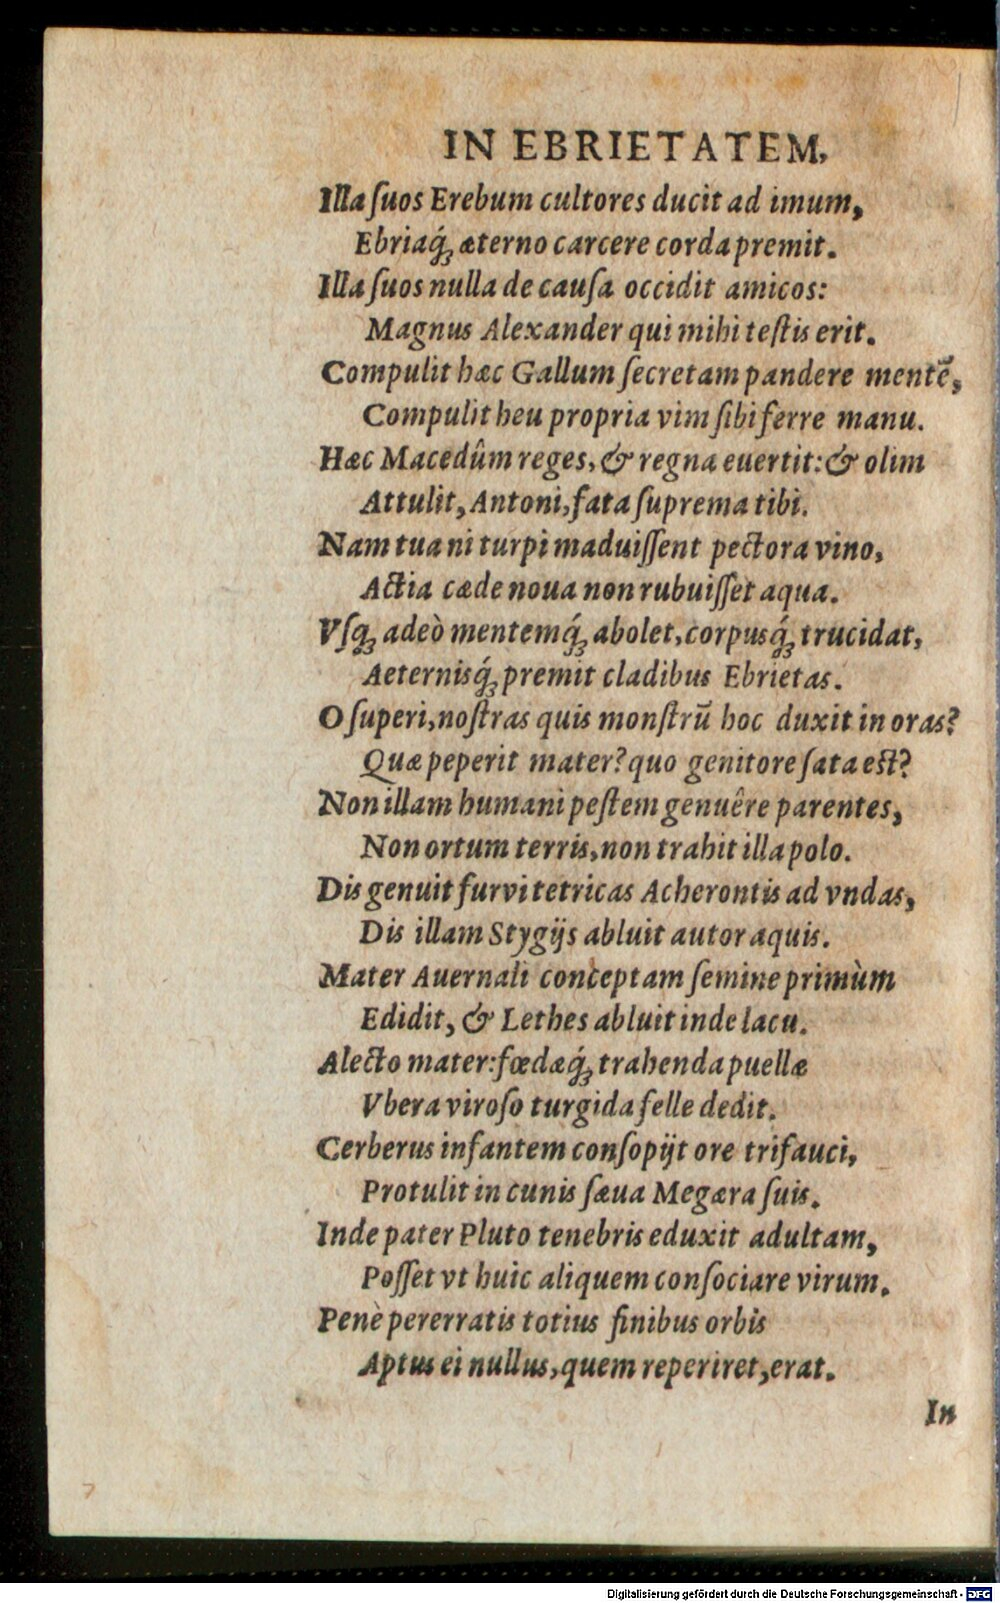 IN EBRIETATEM,
Illa ſuos Erebum cultores ducit ad imum,
Ebriaq́ꝫ æterno carcere corda premit.
Illa ſuos nulla de cauſa occidit amicos:
Magnus Alexander qui mihi teſtis erit.
Compulit hæc Gallum ſecretam pandere mentẽ,
Compulit heu propria vim ſibi ferre manu.
Hæc Macedûm reges, & regna euertit: & olim
Attulit, Antoni, fata ſuprema tibi.
Nam tua ni turpi maduiſſent pectora vino,
Actia cæde noua non rubuiſſet aqua.
Vſqꝫ adeò mentemq́ꝫ abolet, corpusq́ꝫ trucidat,
Aeternisq́ꝫ premit cladibus Ebrietas.
O ſuperi, noſtras quis monſtrũ hoc duxit in oras?
Quæ peperit mater? quo genitore ſata est?
Non illam humani peſtem genuêre parentes,
Non ortum terris, non trahit illa polo.
Dis genuit furvi tetricas Acherontis ad vndas,
Dis illam Stygijs abluit autor aquis.
Mater Auernali conceptam ſemine primùm
Edidit, & Lethes abluit inde lacu.
Alecto mater: fœdæq́ꝫ trahenda puellæ
Vbera viroſo turgida felle dedit.
Cerberus infantem conſopijt ore trifauci,
Protulit in cunis ſæua Megæra ſuis.
Inde pater Pluto tenebris eduxit adultam,
Poſſet vt huic aliquem conſociare virum.
Penè pererratis totius finibus orbis
Aptus ei nullus, quem reperiret, erat.
In
Digitalisierung gefördert durch die Deutsche Forschungsgemeinschaft - DFG